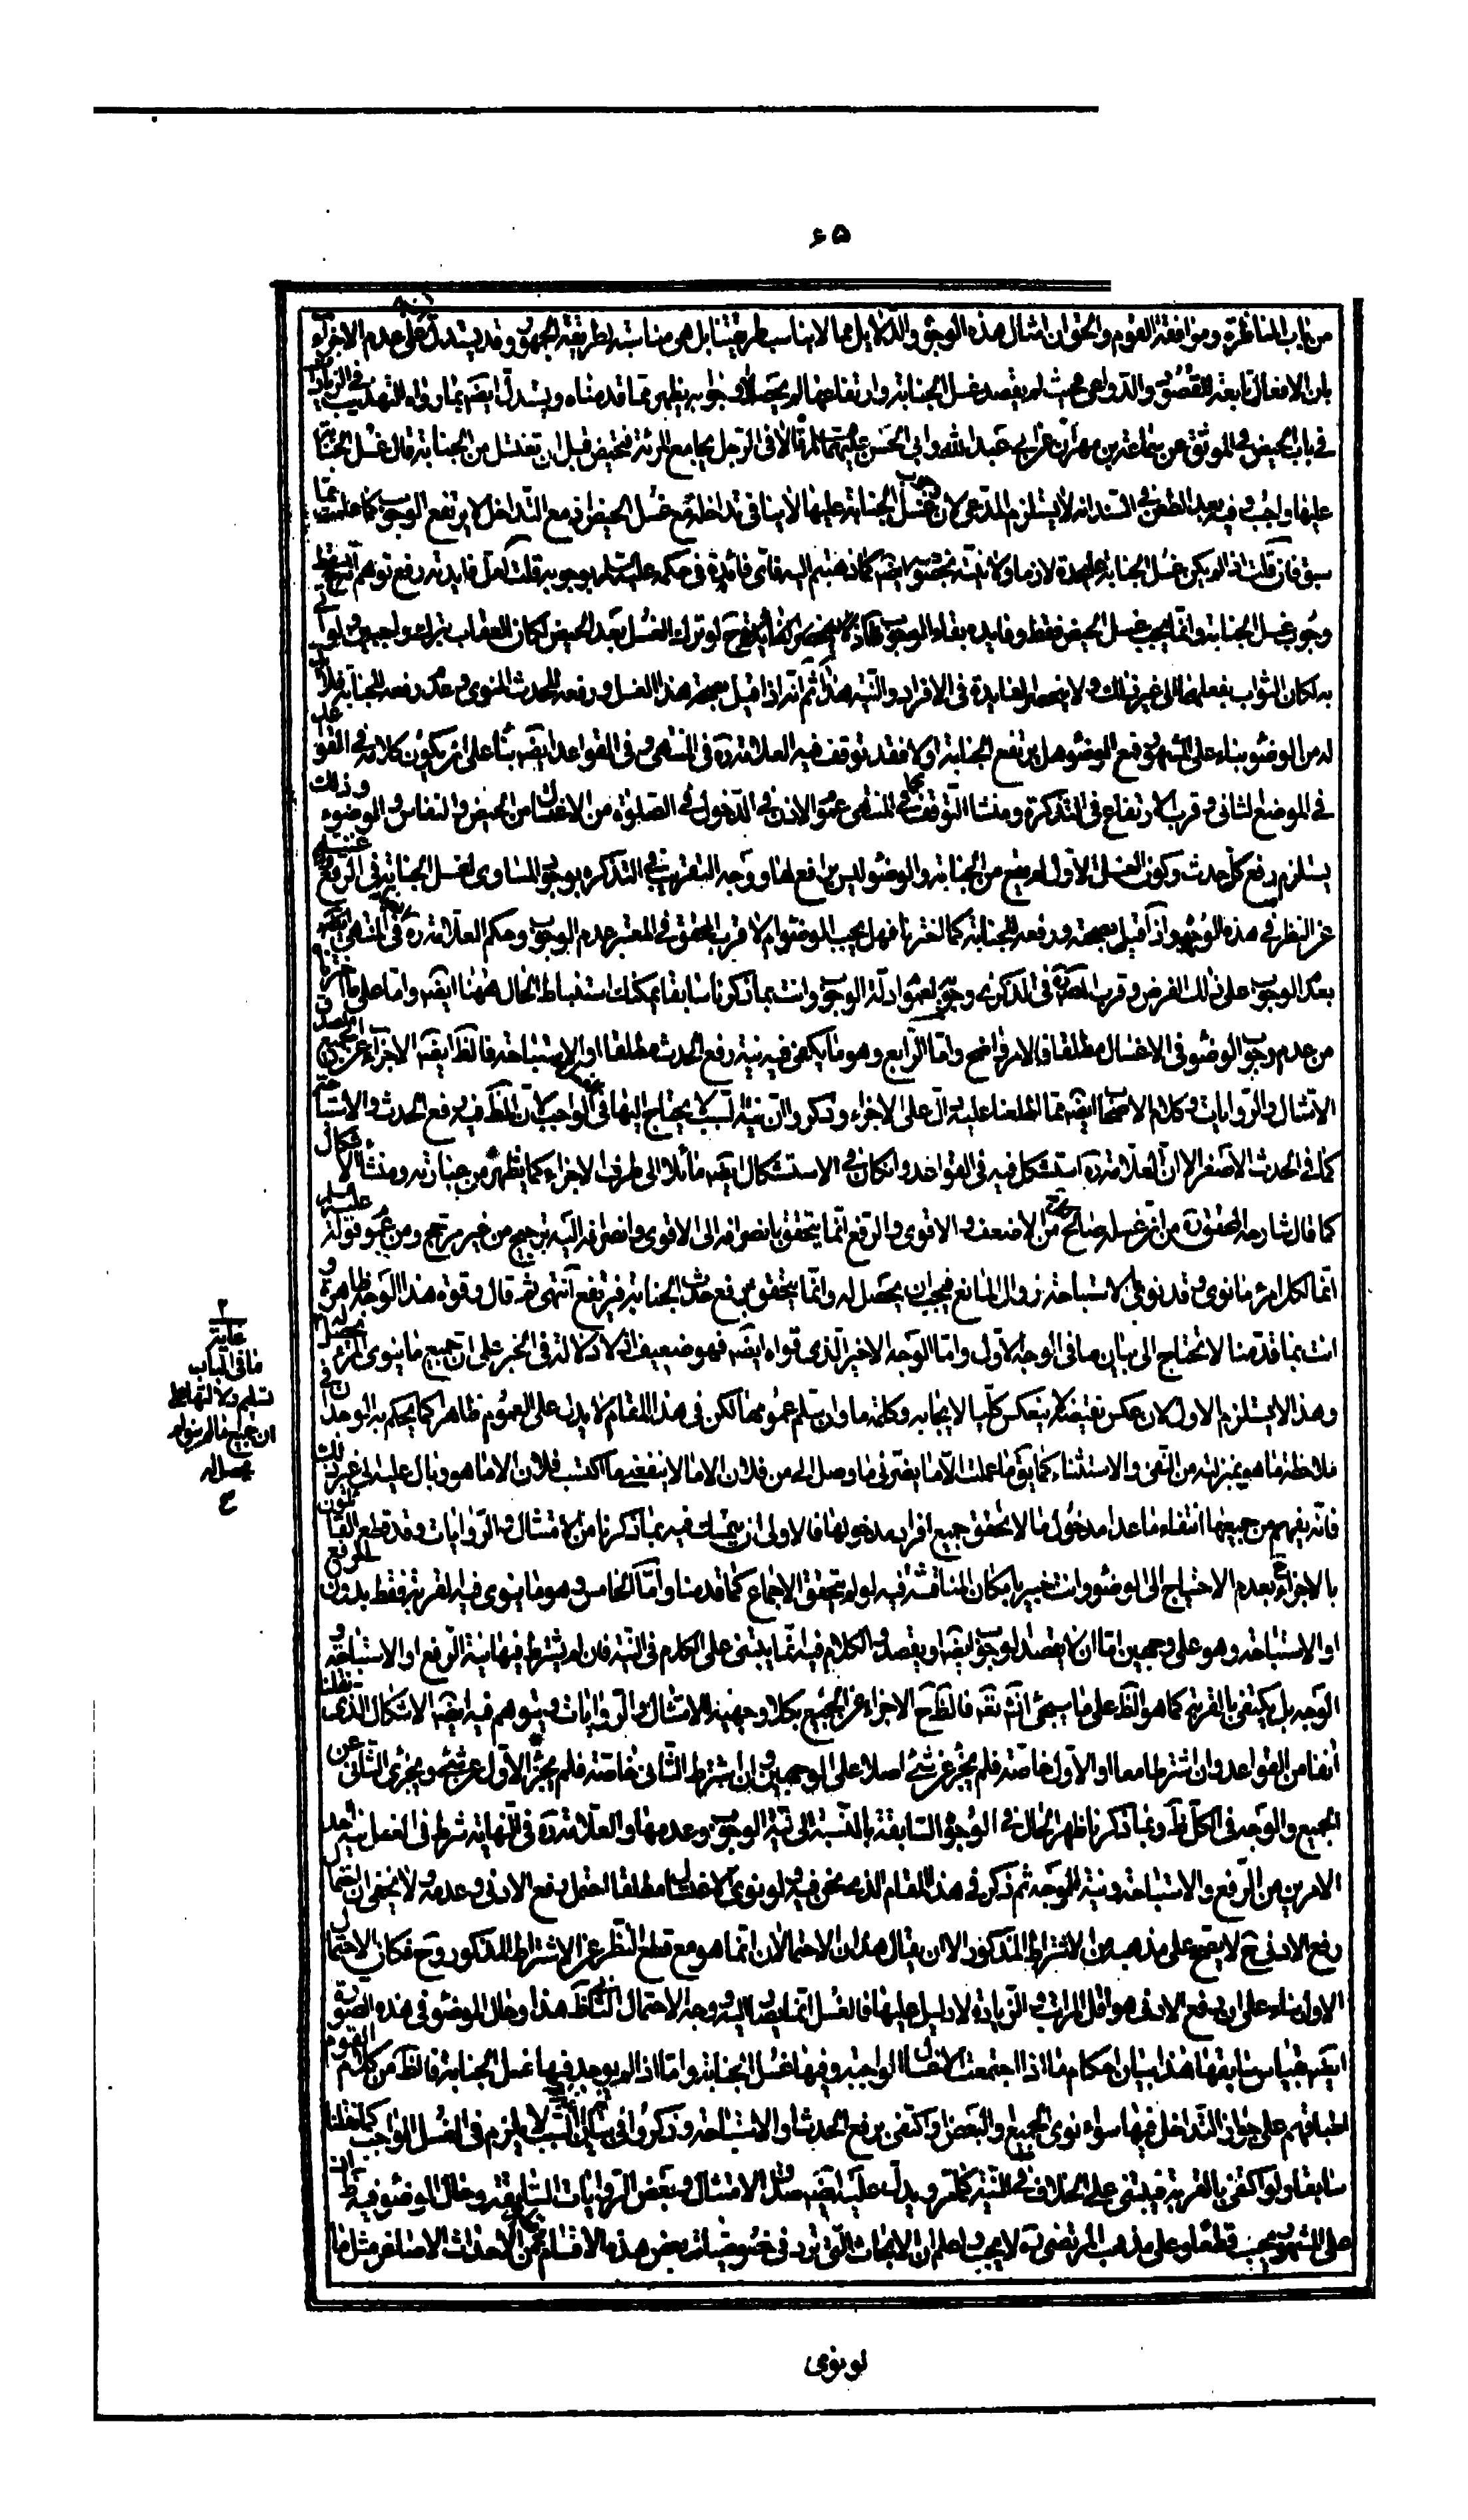 ۶۵
من باب المناظرة وموافقة القوم والحق ان امثال هذه الوجوه والدلايل مما لا يناسب طريقتنا بل هى مناسبة لطريقة الجمهور وقد يستدل على عدم الاجزاء
بان الافعال تابعة للقصود والدواعى فحيث لم يقصد غسل الجنابة وارتفاعها لم يحصلا وجوابه يظهر مما قدمناه ويستدل ايضا بما رواه التهذيب فى الزيادات
فى باب الحيض فى الموثق عن سماعة بن مهران عن ابى عبد الله وابى الحسن عليهما السلام قالا فى الرجل يجامع المرئة فتحيض قبل ان تغتسل من الجنابة قال غسل الجنابة
عليها واجب وفيه بعد الطعن فى السند انه لا يستلزم المدعى لان وجوب غسل الجنابة عليها لا ينافى تداخله مع غسل الحيض اذ مع التداخل لا يرتفع الوجوب كما علمت مما
سبق فان قلت اذا لم يكن غسل الجنابة عليحدة لازما ولا نيته بخصوصه ايضا كما ذهبتم اليه فاى فائدة فى حكمه عليه السلم بوجوبه قلت لعل فايدته رفع توهم
وجوب غسل الجنابة وانما يجب غسل الحيض فقط وفايدة بقاء الوجوب لو ترك الغسل بعد الحيض لكان العقاب بترك واجبين ولو اتى
به لكان الثواب بفعلهما الى غير ذلك ولا ينحصر الفايدة فى الافراد والنية هذا ثم انه اذا قيل بصحة هذا الغسل ورفعه للحدث المنوى وعدم رفعه للجنابة فلا بد
له من الوضوء بناء على المشهور ومع الوضوء هل يرتفع الجنابة اولا فقد توقف فيه العلامة ره فى المنتهى وفى القواعد ايضا بناء على ان يكون كلامه فى القواعد
فى الموضع الثانى وقرب الارتفاع فى التذكرة ومنشا التوقف كما فى المنتهى عموم الاذن فى الدخول فى الصلوة من الاغتسال من الحيض والنفاس والوضوء وذلك
يستلزم رفع كل حدث وكون الغسل الاول لم يقع من الجنابة والوضوء ليس برافع لها ووجه التقريب فى التذكرة بوجود المساوى لغسل الجنابة فى الرفع
عن النظر فى هذه الوجوه واذا قيل بصحته ورفعه للجنابة كما اخترنا فهل يجب الوضوء ام لا قرب المحقق فى المعتبر عدم الوجوب وحكم العلامة ره فى المنتهى
بعدم الوجوب على ذلك الفرض وقرب فى الذكرى وجوبه لعموم ادلة الوجوب وانت بما ذكرنا سابقا يمكنك استنباط الحال ههنا ايضا واما على ما اخترنا
من عدم وجوب الوضوء فى الاغسال مطلقا فالامر واضح واما الرابع وهو ما يكفى فيه نية رفع الحدث مطلقا او الاستباحة فالظ ايضا الاجزاء عن الجميع
الامتثال والروايات وكلام الاصحاب ايضا مما اطلعنا عليه دال على الاجزاء وذكروا ان نية السبب لا يحتاج اليها فى الواجب لان المطلوب فيه رفع الحدث والاستباحة
كما فى الحدث الاصغر الا ان العلامة ره استشكل فيه فى القواعد وان كان فى الاستشكال ايضا مائلا الى طرف الاجزاء كما يظهر من عبارته ومنشا الاشكال
كما قال شارحه المحقق ره من انه غسل صالح لكل من الاضعف والاقوى والرفع انما يتحقق بانصرافه الى الاقوى وانصرافه اليه ترجيح من غير مرجح ومن عموم قوله
انما لكل امرئ ما نوى وقد نوى الاستباحة وزوال المانع فيجب ان يحصل له وانما يتحقق برفع حدث الجنابة فيرتفع انتهى ثم قال وقوة هذا الوجه ظاهرة
انت بما قدمنا لا تحتاج الى بيان ما فى الوجه الاول واما الوجه الاخير الذى قواه ايضا فهو ضعيف اذ لا دلالة فى الخبر على ان جميع ما ينوى المرء يحصل له
وهذا لا يستلزم الاول لان عكس نقيضه لا ينعكس كليا الا ايجابه وكلمة ما وان سلم عمومها لكن فى هذا المقام لا يدل على العموم ظاهرا كما يحكم به الوجدان
ملاحظة ما هو بمنزلته من النفى والاستثناء كما يق ما عملت الا ما يضرنى ما وصل الى من فلان الا ما لا ينفعنى ما اكتسب فلان الا ما هو وبال عليه الى غير ذلك
فانه يفهم من جميعها انتفاء ما عدا مدخول ما لا تحقق جميع افراد مدخولها فالاولى ان يتمسك فيه بما ذكرنا من الامتثال والروايات وقد قطع القائلون
بالاجزاء بعدم الاحتياج الى الوضوء وانت خبير بامكان المناقشة فيه لو لم يتحقق الاجماع كما قدمنا واما الخامس وهو ما ينوى فيه القربة فقط بدون الرفع
او الاستباحة وهو على وجهين اما ان لا يقصد الوجوب ايضا او يقصد والكلام فيه انما يبتنى على الكلام فى النية فان لم يشترط فيها نية الرفع او الاستباحة و
الوجه بل يكتفى بالقربة كما هو الظ على ما سيجئ انشاء الله تعالى فالظ ح الاجزاء عن الجميع بكلا وجهيه للامتثال والروايات ويتوهم فيه ايضا الاشكال الذى نقلنا
آنفا من القواعد وان اشترطا معا او الاول خاصة فلم يجز عن شئ اصلا على الوجهين وان اشترط الثانى خاصة فلم يجز الاول عن شئ ويجزى الثانى عن
الجميع والوجه فى الكل ظ ومما ذكرنا ظهر الحال فى الوجوه السابقة بالنسبة الى نية الوجوب وعدمها والعلامة ره فى النهاية شرط فى الغسل نية احد
الامرين من الرفع والاستباحة ونية الوجه ثم ذكر فى هذا المقام الذى نحن فيه ولو نوى الاغتسال مطلقا احتمل رفع الادنى وعدمه ولا يخفى ان احتمال
رفع الادنى ح لا يصح على مذهبه من الاشتراط المذكور الا ان يقال هذان الاحتمالان انما هو مع قطع النظر عن الاشتراط المذكور وح فكان الاحتمال
الاول بناء على ان رفع الادنى هو اقل المراتب والزيادة لا دليل عليها فالغسل انما يصرف اليه ووجه الاحتمال الثانى ظ هذا وحال الوضوء فى هذه الصور
ايضا بقياس سابقها هذا بيان احكام ما اذا اجتمعت الاغسال الواجبة وفيها غسل الجنابة واما اذا لم يوجد فيها غسل الجنابة فالظ من كلام القوم
اطباقهم على جواز التداخل فيها سواء نوى الجميع او البعض او اكتفى برفع الحدث او الاستباحة وذكروا ان نية السبب لا يلزم فى الغسل الواجب كما نقلنا
سابقا ولو اكتفى بالقربة فيبتنى على الخلاف فى النية كما مر ويدل عليه ايضا صدق الامتثال وبعض الروايات السابقة وحال الوضوء فيه ظ ان
على المشهور يجب قطعا وعلى مذهب المرتضى ره لا يجب واعلم ان الابحاث التى ترد فى خصوصيات بعض هذه الاقسام من الاحداث الاصاغر مثل ما
غاية
ما فى الباب
تسليم دلالتها على
ان جميع ما لم ينو لم
يحصل له
لو نوى